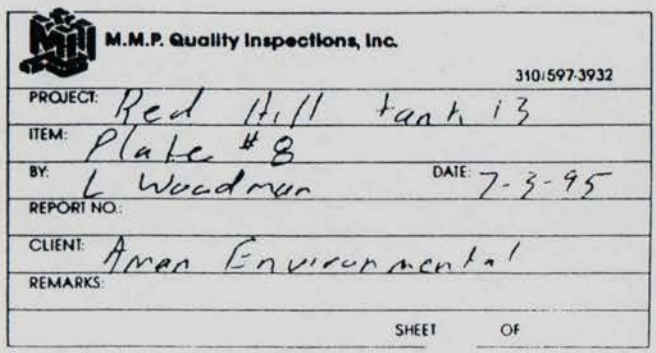 M.M.P. Quality Inspections, Inc.
310/597-3932
PROJECT: Red Hill tank 13
ITEM: Plate #8
BY: L Woodman DATE: 7-3-95
REPORT NO.:
CLIENT: Aman Environmental
REMARKS:
SHEET OF